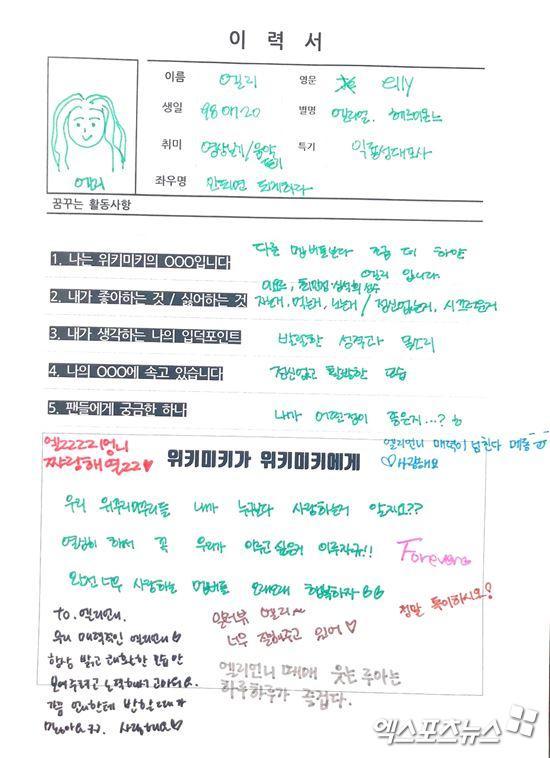 이 력 서
이름 엘리 영문 elly
생일 98.07.20 별명 엘리얼, 헤르미온느
취미 영상보기/음악듣기 특기 익룡성대모사
엘리
좌우명 안되면 되게하라
꿈꾸는 활동사항
1. 나는 위키미키의 OOO입니다 다른 멤버들보다 조금 더 하얀
엘리 입니다.
2. 내가 좋아하는 것 / 싫어하는 것 자는거, 먹는거, 노는거 / 정신없는거, 시끄러운거
3. 내가 생각하는 나의 입덕포인트 발랄한 성격과 목소리
4. 나의 OOO에 속고 있습니다 정신없고 활발한 모습
5. 팬들에게 궁금한 하나 내가 어떤점이 좋은지...?
엘ㄹㄹㄹ리언니
짜랑해 열ㄹㄹ♥
위키미키가 위키미키에게
엘리언니 매력이 넘친다 메롱
♡사랑해요
우리 내가 누구보다 사랑하는거 알지요??
열심히 해서 꼭 우리가 이루고 싶은거 이루자구!!
Forever
완전 너무 사랑하는 멤버들 오래오래 행복하자
정말 특이하시오?
TO. 엘리언니.
우리 매력적인 엘리언니
항상 밝고 쾌활한 모습만
보여주려고 노력해줘서 고마워요.
가끔 언니한테 반할때가
많아요ㅋㅋ. 사랑해요♡
알러뷰 엘리~
너무 잘해주고 있어♡
엘리언니 때매 웃는 루아는
하루하루가 즐겁다.
엑스포츠뉴스